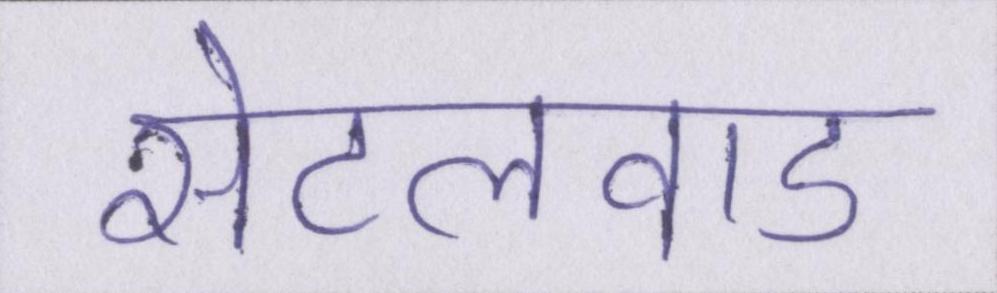 सेटलवाड